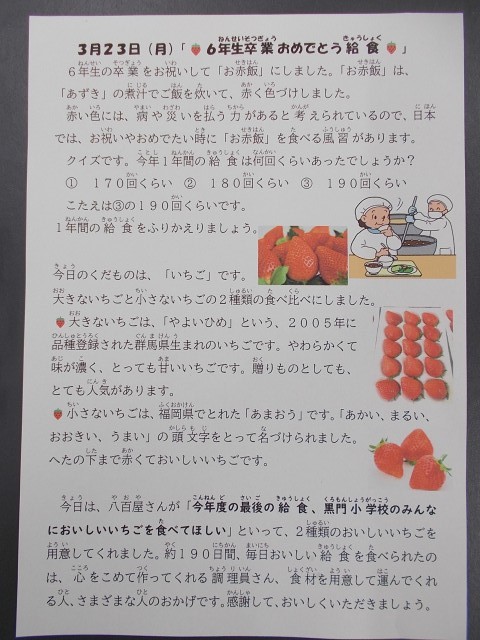 3月23日(月)「🍓6年生卒業おめでとう給食🍓」
6年生の卒業をお祝いして「お赤飯」にしました。「お赤飯」は、
「あずき」の煮汁でご飯を炊いて、赤く色づけしました。
赤い色には、病や災いを払う力があると考えられているので、日本
では、お祝いやおめでたい時に「お赤飯」を食べる風習があります。
クイズです。今年1年間の給食は何回くらいあったでしょうか?
① 170回くらい ② 180回くらい ③ 190回くらい
こたえは③の190回くらいです。
1年間の給食をふりかえりましょう。
今日のくだものは、「いちご」です。
大きないちごと小さないちごの2種類の食べ比べにしました。
🍓大きないちごは、「やよいひめ」という、2005年に
品種登録された群馬県生まれのいちごです。やわらかくて
味が濃く、とっても甘いいちごです。贈りものとしても、
とても人気があります。
🍓小さないちごは、福岡県でとれた「あまおう」です。「あかい、まるい、
おおきい、うまい」の頭文字をとって名づけられました。
へたの下まで赤くておいしいいちごです。
今日は、八百屋さんが「今年度の最後の給食、黒門小学校のみんな
においしいいちごを食べてほしい」といって、2種類のおいしいいちごを
用意してくれました。約190日間、毎日おいしい給食を食べられたの
は、心をこめて作ってくれる調理員さん、食材を用意して運んでくれ
る人、さまざまな人のおかげです。感謝して、おいしくいただきましょう。